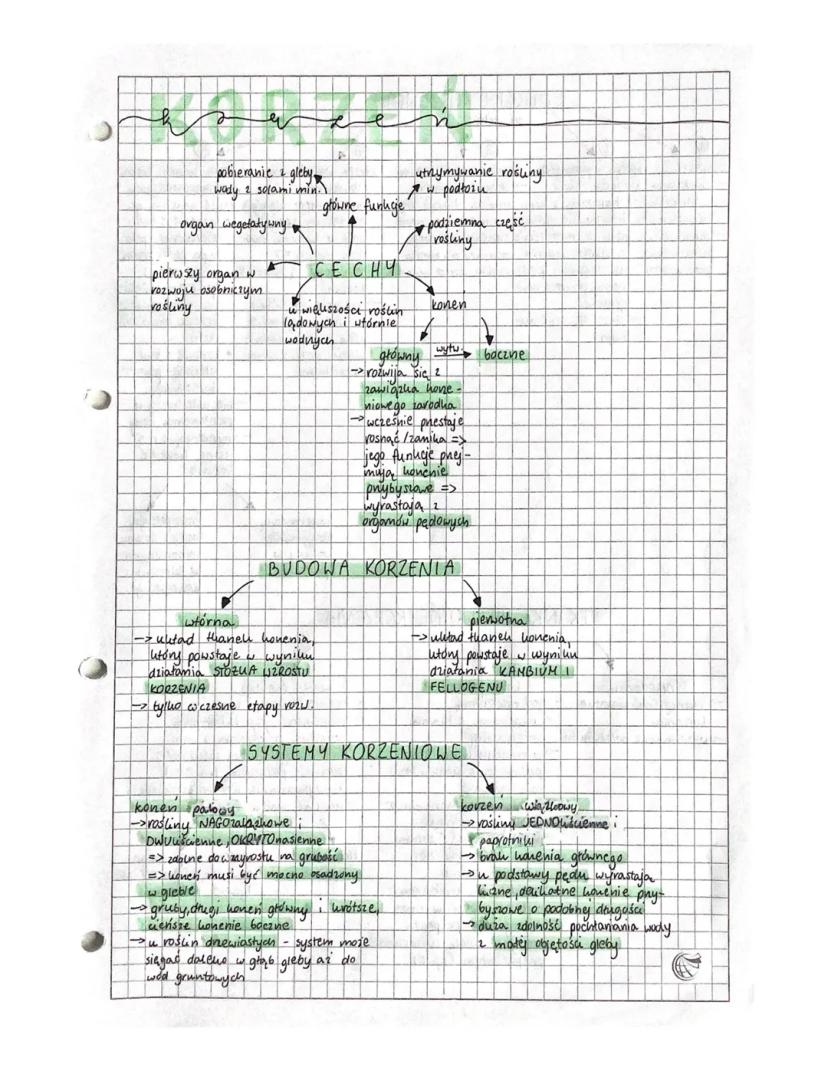 KORZEŃ
korzeń
pobieranie z gleby
wody z solami min.
utrzymywanie rośliny
w podłożu
główne funkcje
organ wegetatywny
podziemna część
rośliny
CECHY
pierwszy organ w
rozwoju osobniczym
rośliny
u większości roślin
lądowych i wtórnie
wodnych
korzeń
główny wytw. boczne
→ rozwija się z
zawiązka korze-
niowego zarodka
→ wcześnie przestaje
rosnąć/zanika =>
jego funkcje przej-
mują korzenie
przybyszowe =>
wyrastają z
organów pędowych
BUDOWA KORZENIA
wtórna
→ układ tkanek korzenia,
który powstaje w wyniku
działania STOŻKA WZROSTU
KORZENIA
→ tylko wczesne etapy rozw.
pierwotna
→ układ tkanek korzenia,
który powstaje w wyniku
działania KAMBIUM I
FELLOGENU
SYSTEMY KORZENIOWE
korzeń palowy
→ rośliny NAGOzalążkowe i
DWUliścienne, OKRYTOnasienne
=> zdolne do wzayrostu na grubość
=> korzeń musi być mocno osadzony
w glebie
→ gruby, długi korzeń główny i krótsze,
cieńsze korzenie boczne
→ u roślin drzewiastych - system może
sięgać daleko w głąb gleby aż do
wód gruntowych
korzeń wiązkowy
→ rośliny JEDNOliścienne i
paprotniki
→ brak korzenia głównego
→ u podstawy pędu wyrastają
liczne, delikatne korzenie przy-
byszowe o podobnej długości
→ duża zdolność pochłaniania wody
z małej objętości gleby